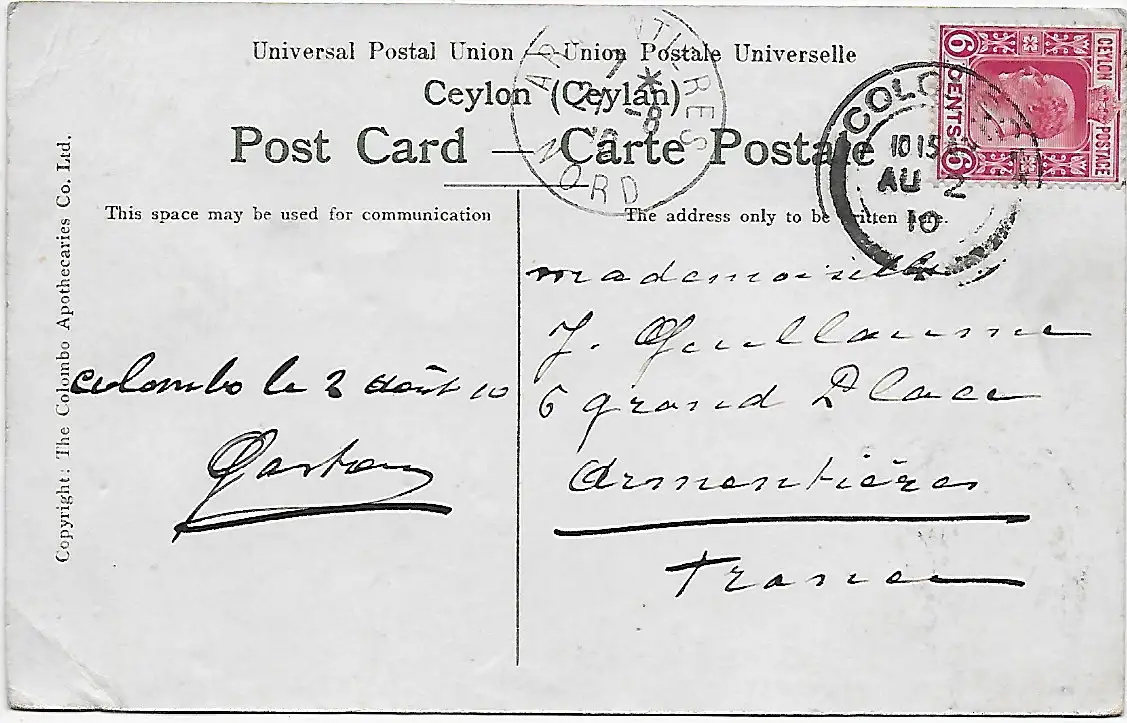 Universal Postal Union — Union Postale Universelle
Ceylon (Ceylan)
Post Card — Carte Postale
This space may be used for communication
The address only to be written here.
Copyright: The Colombo Apothecaries Co. Ltd.
Colombo le 2 août 10
Gaston
mademoiselle
J. Guillaume
6 grand Place
Armentières
France
CEYLON POSTAGE
6 CENTS 6
COLOMBO
10 15
AU 2
10
ARMENTIERES
7 *
-8
NORD